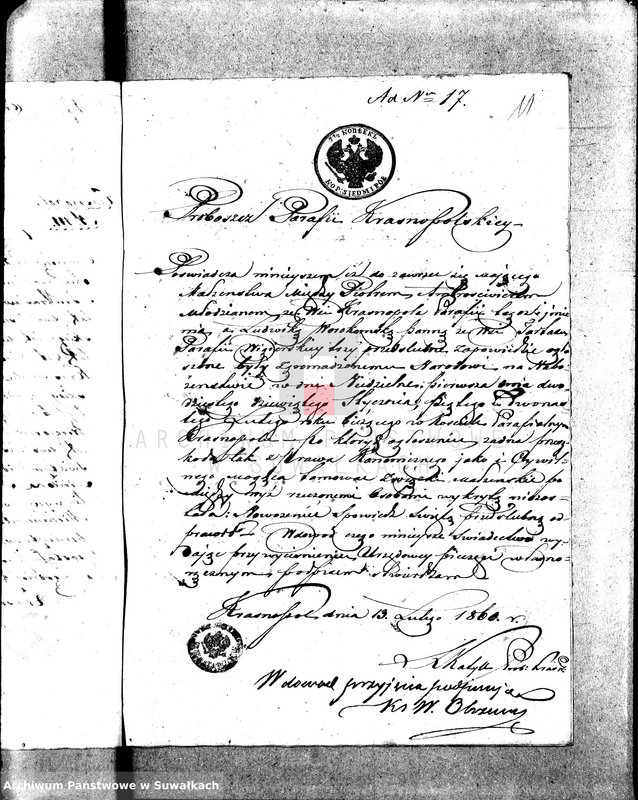 Ad Nro 17.
11
7½ KOПѢEKЪ
KOP: SIEDM I PÓŁ
Proboszcz Parafii Krasnopolskiey
Poświadcza ninieyszem iż do zawrzeć się maiącego
Małżeństwa między Piotrem Ambrosiewiczem
Młodzianem ze Wsi Krasnopola Parafii tegoż imie
nia, a Ludwiką Worokomską Panną ze Wsi
Parafii Wigierskiey trzy przedślubne zapowiedzie ogło
szone były zgromadzonemu Narodowi na Nabo
żeństwie w dni Niedzielne; pierwsza dnia dwu
dziestego dziewiątego Stycznia, piątego i dwunas
tego Lutego roku bieżącego w Kościele Parafialnym
Krasnopolu – po których ogłoszeniu, żadna przesz
koda tak z Prawa Kanonicznego jako i Cywil
nego mogąca tamować Związek małżeński po
między wyż rzeczonemi Osobami wykrytą niezos
tała: Nowożenie Spowiedź Świętą przedślubną od
prawił – Na dowód czego ninieysze Świadectwo wy
daję przy wyciśnieniu Urzędowey pieczęci własno
ręcznym podpisem stwierdzam
Krasnopol dnia 13 Lutego 1860. r.
Prob: Krasn:
W dowód przyjęcia podpisuję
Ks W.
ARCHIWUM PAŃSTWOWE
W SUWAŁKACH
Archiwum Państwowe w Suwałkach